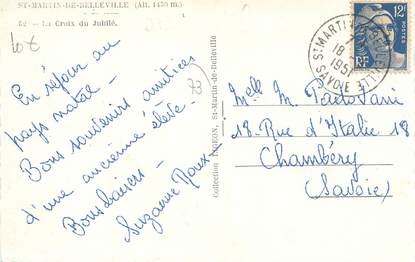 ST-MARTIN-DE-BELLEVILLE (Alt. 1450 m.)
62 - La Croix du Jubilé.
En séjour au
pays natal -
Bons souvenirs amitiés
d'une ancienne élève.
Bons baisers -
Suzanne Roux
73
Collection LIGEON, St-Martin-de-Belleville
12F
POSTES
RF
ST MARTIN BELLEVILLE
18
1951
SAVOIE
Melle M. Padovani
18 Rue d'Italie 18
Chambéry
(Savoie)